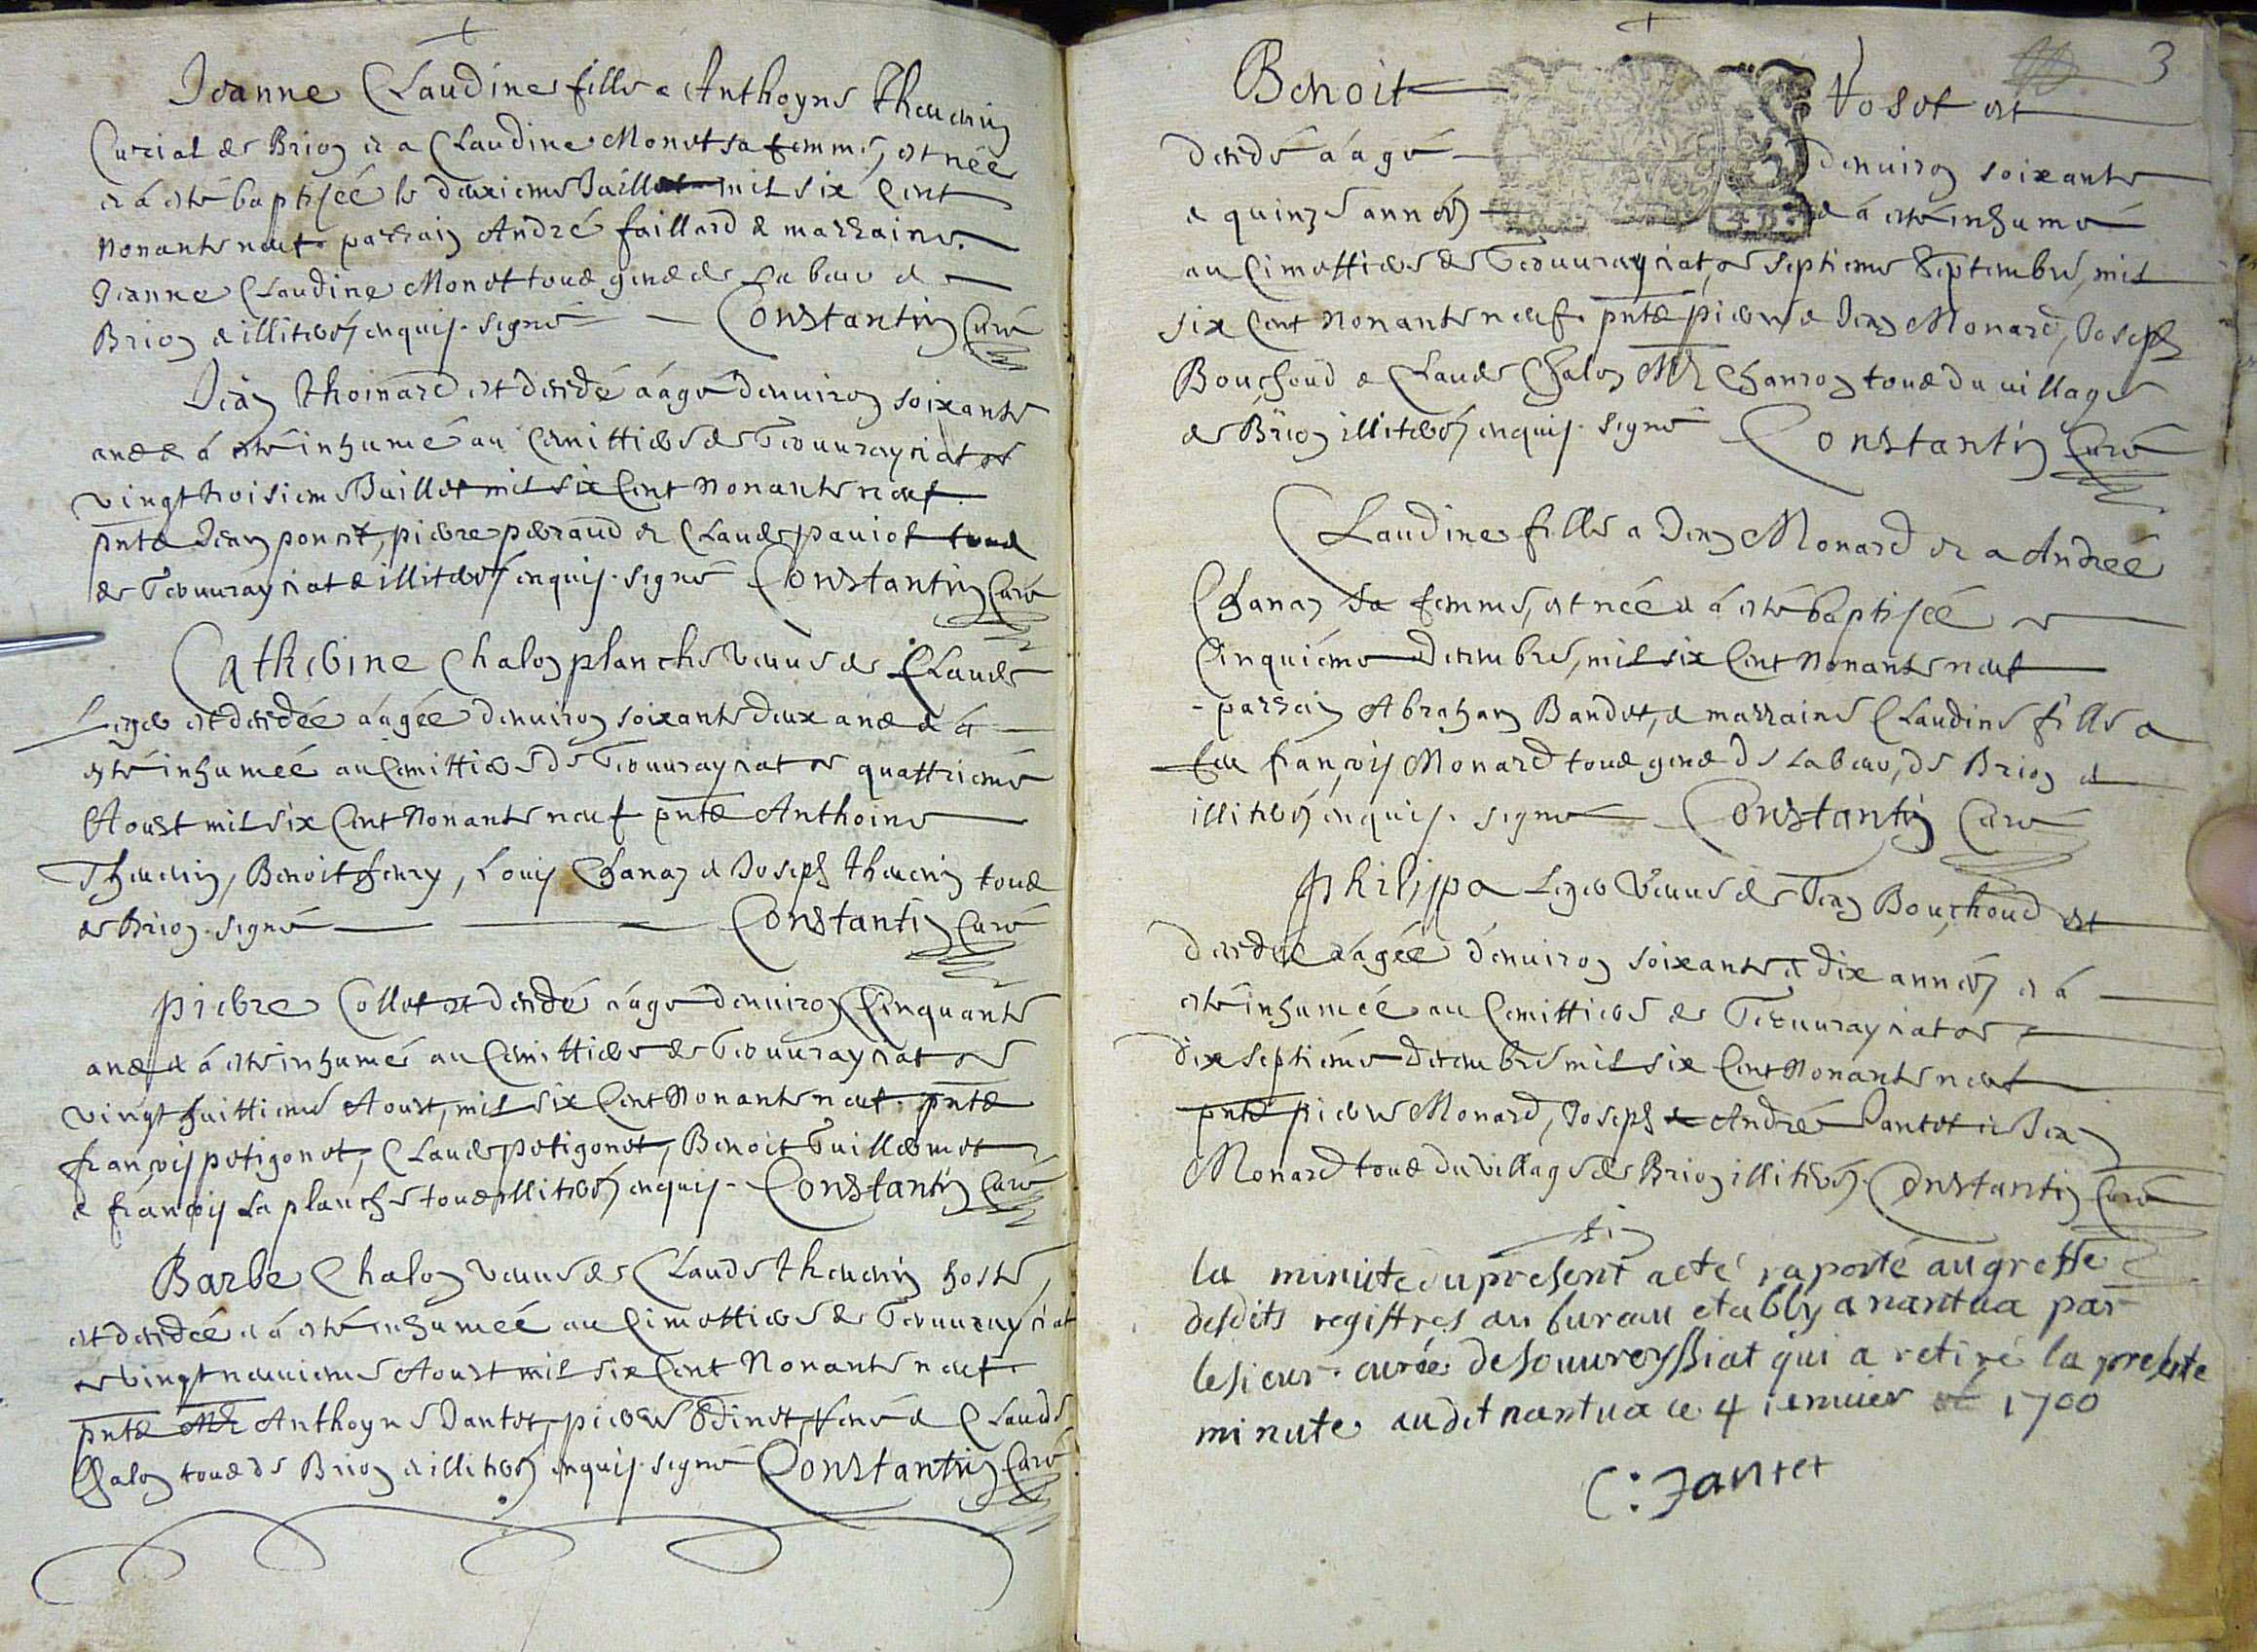 Jeanne Claudine fille a Anthoyne Thevenin
Curial de Brion et a Claudine Monet sa femme, est née
et á esté baptiseé le deuxieme Juillet mil six Cent
nonante neuf. parrain André faillard & marraine.
Jeanne Claudine Monet tous gens de Labeur de
Brion & illiterés enquis. signé Constantin Curé
Jean Thoinard est decedé áágé denuiron soixante
ans & á esté inhumé au Cemittiere de Geouurayriat le
vingt troisieme Juillet mil six Cent nonante neuf
pnts Jean poncet, pierre peraud et Claude pauiot tous
de Geouurayriat & illiterés enquis. signé Constantin Curé
Catherine Chalon planche veuue de Claude
Leger est decedée áágée denuiron soixante deux ans & á
esté inhumeé au Cemittiere de Geouurayriat le quattrieme
Aoust mil six Cent Nonante neuf pnts Anthoine
Thevenin, Benoit henry, Louis Chanaz & Joseph thevenin tous
de Brion. signé Constantin Curé
pierre Collet est decedé áágé denuiron Cinquante
ans & á esté inhumé au Cemittiere de Geouurayriat le
vingt huittieme Aoust, mil six Cent Nonante neuf. pnts
françois petigonet, Claude petigonet, Benoit Guillermet
& françois La planche tous illiterés enquis. Constantin Curé
Barbe Chalon veuue de Claude thevenin hoste,
est decedeé & á esté inhumeé au Cimettiere de Geouurayriat
le vingt neuuieme Aoust mil six Cent Nonante neuf
pnts Mre Anthoyne Jantet, pierre Odinet, & Claude
Chalon tous de Brion & illiterés enquis. signé Constantin Curé
3
Benoit Voset est
decedé áágé denuiron soixante
& quinze années & á esté inhumé
au Cimettiere de Geouurayriat, le septieme Septembre, mil
six Cent nonante neuf. pnts pierre & Jean Monard, Joseph
Bouchoud & Claude Chalon Mre Charron tous du uillage
de Brion illiterés enquis. signé Constantin Curé
Claudine fille a Jean Monard et a Andreé
Chanaz sa femme, est née & á esté baptiseé le
Cinquiéme decembre, mil six Cent nonante neuf
parrain Abraham Baudet, & marraine Claudine fille a
feu françois Monard tous gens de Labeur, de Brion &
illiterés enquis. signé Constantin Curé
Philippa Leger veuue de Jean Bouchoud est
decedeé áágée d'enuiron soixante & dix années & á
esté inhumeé au Cemittiere de Geouurayriat le
dix septiéme decembre mil six Cent Nonante neuf
pnts pierre Monard, Joseph & André Jantet & Jean
Monard tous du village de Brion illiterés. Constantin Curé
fin
la minute du present acte raporté au greffe
desdits registres au bureau etably a nantua par
le sieur curée de Jouureyssiat qui a retiré la presente
minute audit nantua ce 4 ienuier 1700
C: Jantet